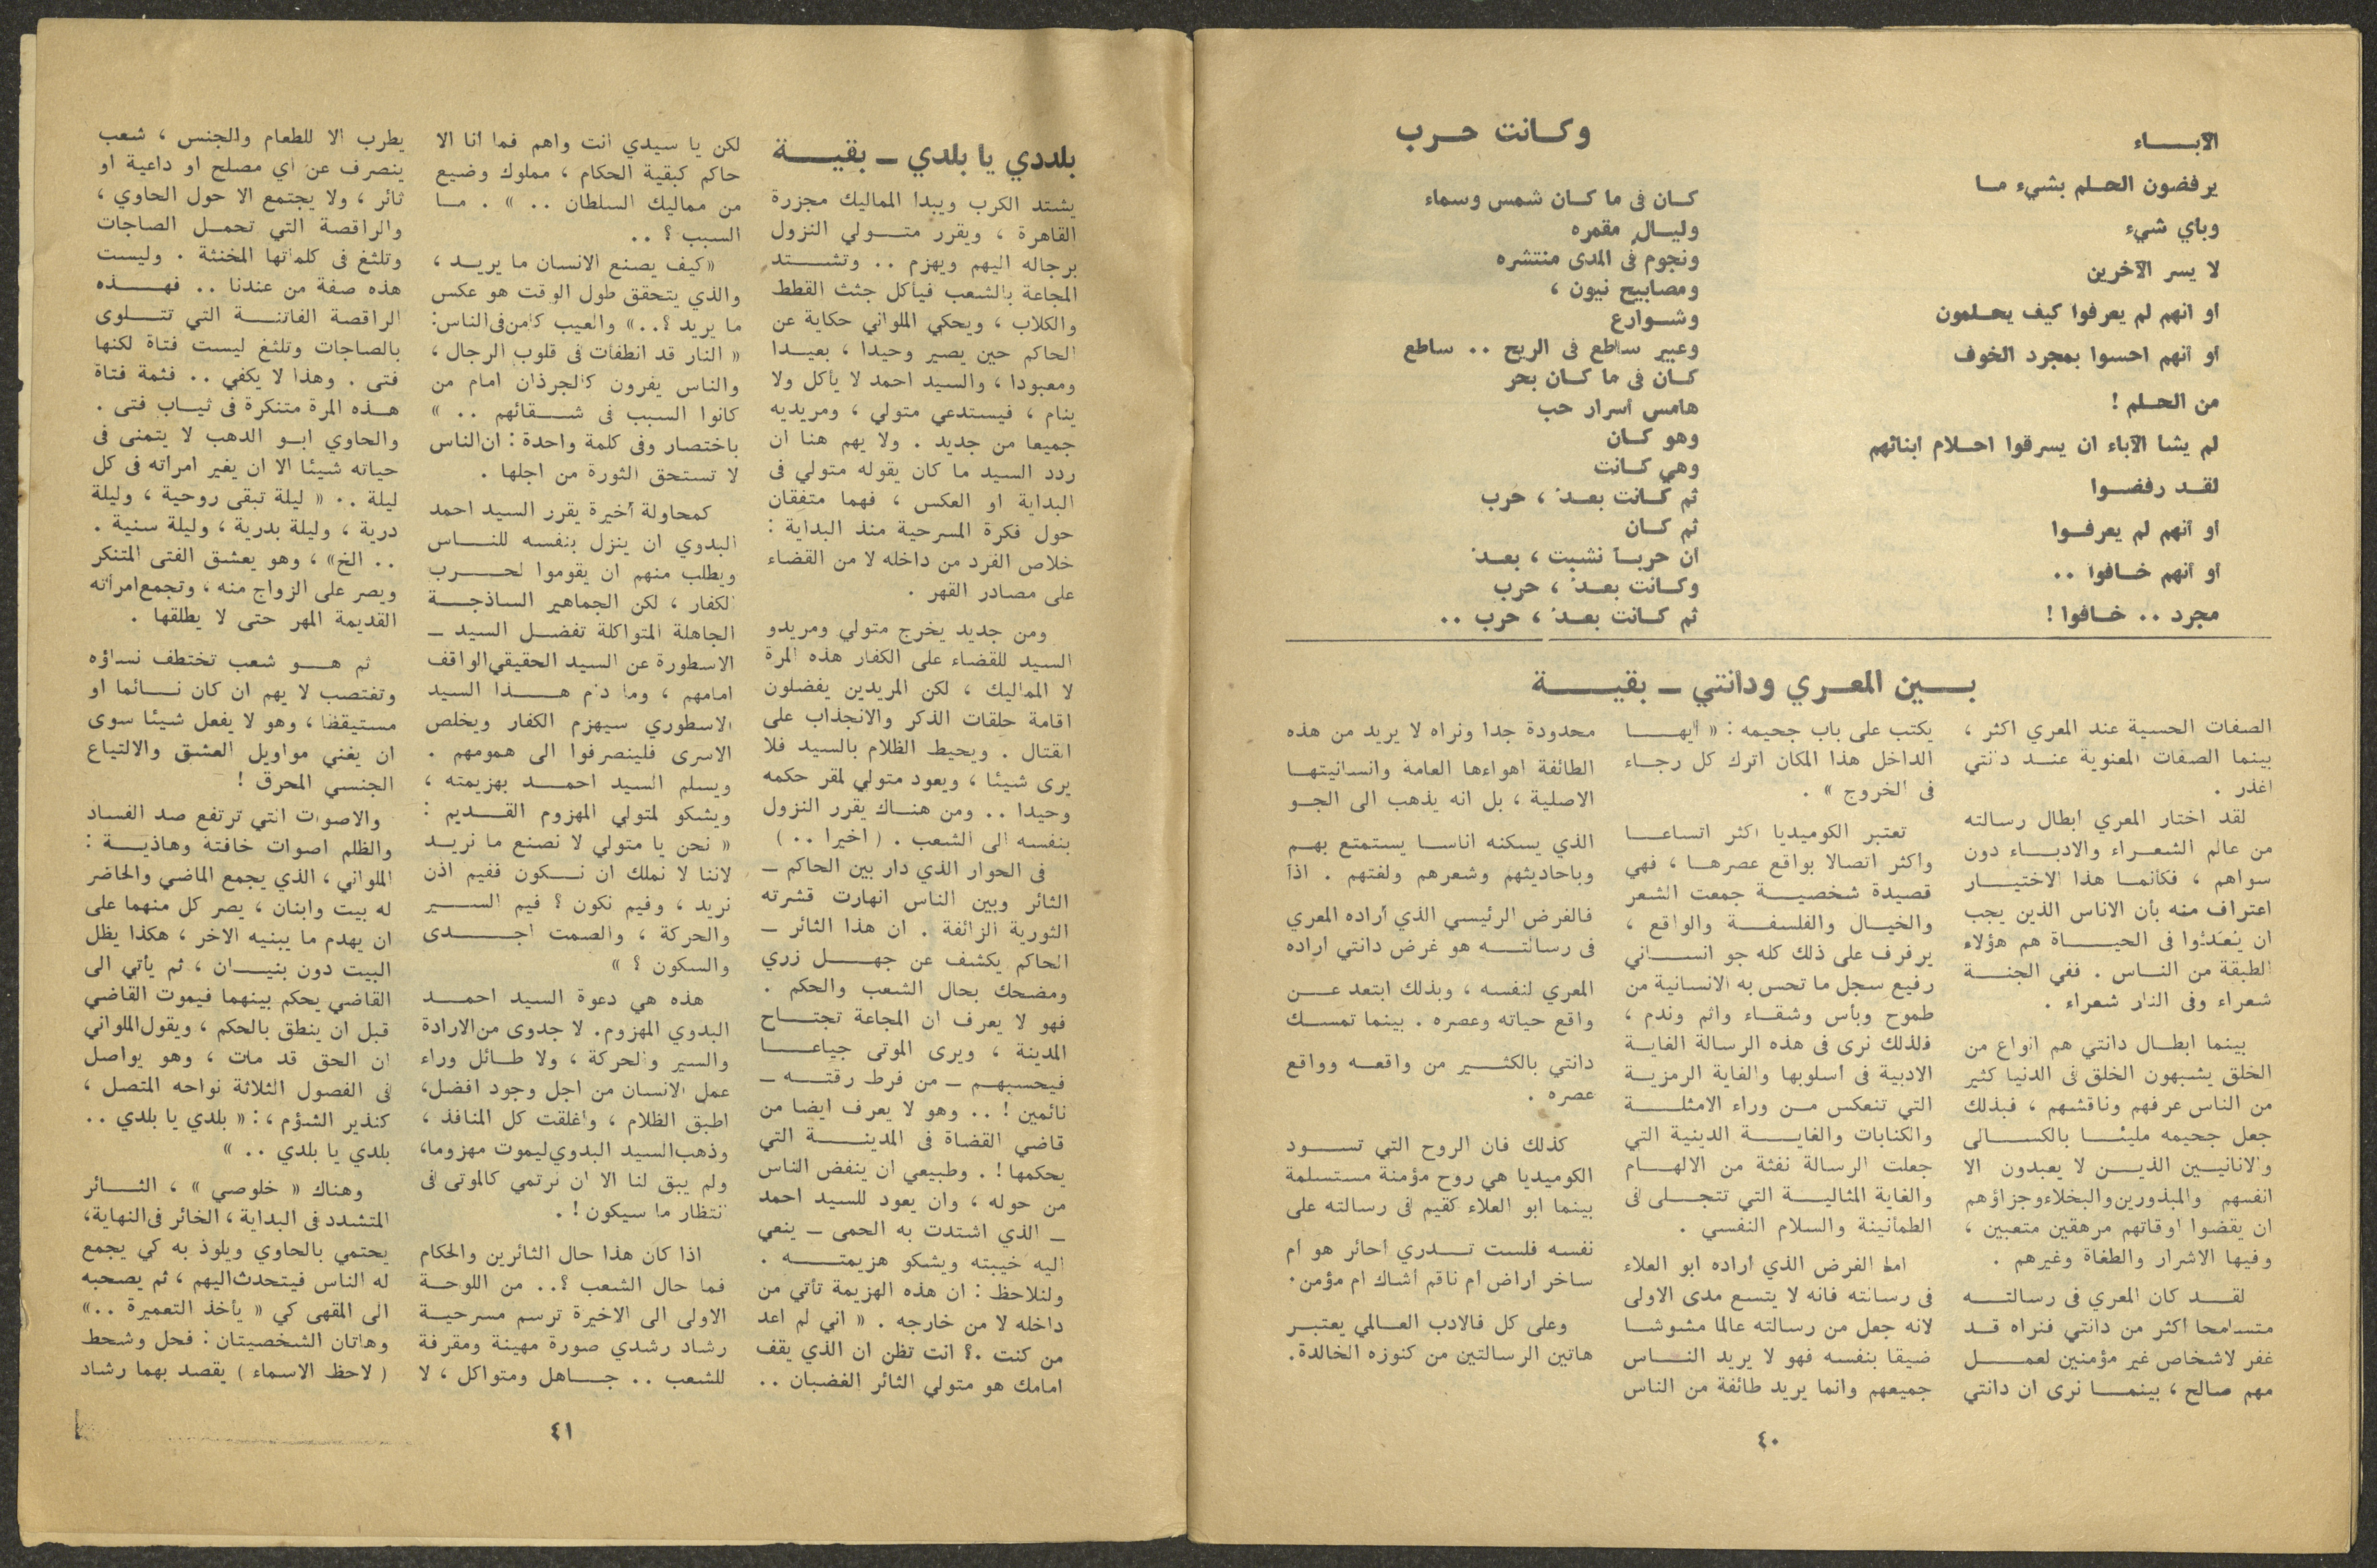 الآبـــاء
يرفضون الحـلم بشيء مـا
وباي شيء
لا يسر الآخرين
او انهم لم يعرفوا كيف يحـلمون
أو أنهم احسوا بمجرد الخوف
من الحـلم !
لم يشا الآباء ان يسرقوا احـلام ابنائهم
لقـد رفضـوا
أو أنهم لم يعرفـوا
أو أنهم خـافوا ..
مجرد .. خـافوا !
وكـانت حـرب
كـان فى ما كـان شمس وسماء
وليـالٍ مقمره
ونجوم فى المدى منتشره
ومصابيح نيون ،
وشـوارع
وعبير ساطع فى الريح .. ساطع
كـان فى ما كـان بحر
هامس أسرار حب
وهو كـان
وهي كـانت
ثم كـانت بعـد ، حرب
ثم كـان
ان حربـا نشبت ، بعـد
وكـانت بعـد ، حرب
ثم كـانت بعـد ، حرب ..
بـين المعـري ودانتي ـ بقيـة
الصفات الحسية عند المعري اكثر ،
بينما الصفات المعنوية عنـد دانتي
اغذر .
لقد اختار المعري ابطال رسالته
من عالم الشعـراء والادبـاء دون
سواهم ، فكأنمـا هذا الاختيـار
اعتراف منه بأن الاناس الذين يجب
ان يُعَدّوا فى الحيـاة هم هؤلاء
الطبقة من النـاس . ففي الجنـة
شعراء وفى النار شعراء .
بينما ابطـال دانتي هم انواع من
الخلق يشبهون الخلق فى الدنيا كثير
من الناس عرفهم وناقشهم ، فبذلك
جعل جحيمه مليئـا بالكسـالى
والانانيـين الذيـن لا يعبدون الا
انفسهم والمبذورين والبخلاء وجزاؤهم
ان يقضوا اوقاتهم مرهقين متعبين ،
وفيها الاشرار والطغاة وغيرهم .
لقـد كان المعري فى رسالتـه
متسامحا اكثر من دانتي فنراه قـد
غفر لاشخاص غير مؤمنين لعمـل
مهم صالح ، بينمـا نرى ان دانتي
يكتب على باب جحيمه : « أيهـا
الداخل هذا المكان اترك كل رجـاء
فى الخروج » .
تعتبر الكوميديا اكثر اتساعـا
واكثر اتصالا بواقع عصرهـا ، فهي
قصيدة شخصيـة جمعت الشعر
والخيـال والفلسفـة والواقع ،
يرفرف على ذلك كله جو انسـاني
رفيع سجل ما تحس به الانسانية من
طموح وبأس وشقـاء واثم وندم ،
فلذلك نرى فى هذه الرسالة الغايـة
الادبية فى أسلوبها والغاية الرمزيـة
التي تنعكس مـن وراء الامثلـة
والكنايات والغايـة الدينية التي
جعلت الرسالة نفثة من الالهـام
والغاية المثاليـة التي تتجـلى فى
الطمأنينة والسلام النفسي .
اما الغرض الذي أراده ابو العلاء
فى رسالته فانه لا يتسع مدى الاولى
لانه جعل من رسالته عالما مشوشـا
ضيقا بنفسه فهو لا يريد النـاس
جميعهم وانما يريد طائفة من الناس
محدودة جدا ونراه لا يريد من هذه
الطائفة اهواءها العامة وانسانيتهـا
الاصلية ، بل انه يذهب الى الجـو
الذي يسكنه اناسـا يستمتع بهـم
وباحاديثهم وشعرهم ولغتهم . اذاً
فالغرض الرئيسي الذي أراده المعري
فى رسالتـه هو غرض دانتي أراده
المعري لنفسه ، وبذلك ابتعد عـن
واقع حياته وعصره . بينما تمسـك
دانتي بالكثـير من واقعـه وواقع
عصره .
كذلك فان الروح التي تسـود
الكوميديا هي روح مؤمنة مستسلمة
بينما ابو العلاء كقيم فى رسالته على
نفسه فلست تـدري أحائر هو ام
ساخر أراض أم ناقم أشاك ام مؤمن .
وعلى كل فالادب العـالمي يعتبـر
هاتين الرسالتين من كنوزه الخالدة .
٤٠
بلددي يا بلدي ـ بقيـة
يشتد الكرب ويبدا المماليك مجزرة
القاهرة ، ويقرر متـولي النزول
برجاله اليهم ويهزم .. وتشـتد
المجاعة بالشعب فيأكل جثث القطط
والكلاب ، ويحكي الملواني حكاية عن
الحاكم حين يصير وحيدا ، بعيـدا
ومعبودا ، والسيد احمد لا يأكل ولا
ينام ، فيستدعي متولي ، ومريديه
جميعا من جديد . ولا يهم هنا ان
ردد السيد ما كان يقوله متولي فى
البداية او العكس ، فهما متفقان
حول فكرة المسرحية منذ البداية :
خلاص الفرد من داخله لا من القضاء
على مصادر القهر .
ومن جديد يخرج متولي ومريدو
السيد للقضاء على الكفار هذه المرة
لا المماليك ، لكن المريدين يفضلون
اقامة حلقات الذكر والانجذاب على
القتال . ويحيط الظلام بالسيد فلا
يرى شيئا ، ويعود متولي لمقر حكمه
وحيدا .. ومن هنـاك يقرر النزول
بنفسه الى الشعب . ( اخيرا .. )
فى الحوار الذي دار بين الحاكم ـ
الثائر وبين الناس انهارت قشرته
الثورية الزائفة . ان هذا الثائر ـ
الحاكم يكشف عن جهـل زري
ومضحك بحال الشعب والحكم .
فهو لا يعرف ان المجاعة تجتـاح
المدينة ، ويرى الموتى جياعـا
فيحسبهـم ـ من فرط رقتـه ـ
نائمين ! .. وهو لا يعرف ايضا من
قاضي القضاة فى المدينـة التي
يحكمها ! . وطبيعي ان ينفض الناس
من حوله ، وان يعود للسيد احمد
ـ الذي اشتدت به الحمى ـ ينعي
اليه خيبته ويشكو هزيمتـه .
ولنلاحظ : ان هذه الهزيمة تأتي من
داخله لا من خارجه . « اني لم اعد
من كنت .؟ انت تظن ان الذي يقف
امامك هو متولي الثائر الغضبان ..
لكن يا سيدي انت واهم فما انا الا
حاكم كبقية الحكام ، مملوك وضيع
من مماليك السلطان .. » . مـا
السبب ؟ ..
« كيف يصنع الانسان ما يريـد ،
والذي يتحقق طول الوقت هو عكس
ما يريد ؟.. » والعيب كامن فى الناس :
« النار قد انطفأت فى قلوب الرجال ،
والناس يفرون كالجرذان امام من
كانوا السبب فى شـقائهم .. »
باختصار وفى كلمة واحدة : ان الناس
لا تستحق الثورة من اجلها .
كمحاولة أخيرة يقرر السيد احمد
البدوي ان ينزل بنفسه للنـاس
ويطلب منهم ان يقوموا لحـرب
الكفار ، لكن الجماهير الساذجـة
الجاهلة المتواكلة تفضـل السيد ـ
الاسطورة عن السيد الحقيقي الواقف
امامهم ، وما دام هـذا السيد
الاسطوري سيهزم الكفار ويخلص
الاسرى فلينصرفوا الى همومهم .
ويسلم السيد احمـد بهزيمته ،
ويشكو لمتولي المهزوم القـديم :
« نحن يا متولي لا نصنع ما نريـد
لاننا لا نملك ان نـكون ففيم اذن
نريد ، وفيم نكون ؟ فيم السـير
والحركة ، والصمت اجـدى
والسكون ؟ »
هذه هي دعوة السيد احمـد
البدوي المهزوم . لا جدوى من الارادة
والسير والحركة ، ولا طـائل وراء
عمل الانسان من اجل وجود افضل ،
اطبق الظلام ، واغلقت كل المنافذ ،
وذهب السيد البدوي ليموت مهزوما ،
ولم يبق لنا الا ان نرتمي كالموتى فى
انتظار ما سيكون ! .
اذا كان هذا حال الثائرين والحكام
فما حال الشعب ؟.. من اللوحـة
الاولى الى الاخيرة ترسم مسرحيـة
رشاد رشدي صورة مهينة ومقرفة
للشعب .. جـاهل ومتواكل ، لا
يطرب الا للطعام والجنس ، شعب
ينصرف عن اي مصلح او داعية او
ثائر ، ولا يجتمع الا حول الحاوي ،
والراقصة التي تحمـل الصاجات
وتلثغ فى كلماتها المخنثة . وليست
هذه صفة من عندنا .. فهـذه
الراقصة الفاتنـة التي تتـلوى
بالصاجات وتلثغ ليست فتاة لكنها
فتى . وهذا لا يكفي .. فثمة فتاة
هـذه المرة متنكرة فى ثيـاب فتى .
والحاوي ابـو الدهب لا يتمنى فى
حياته شيئا الا ان يغير امراته فى كل
ليلة .. « ليلة تبقى روحية ، وليلة
درية ، وليلة بدرية ، وليلة سنية .
.. الخ » ، وهو يعشق الفتى المتنكر
ويصر على الزواج منه ، وتجمع امرأته
القديمة المهر حتى لا يطلقها .
ثم هـو شعب تختطف نساؤه
وتغتصب لا يهم ان كان نـائما او
مستيقظا ، وهو لا يفعل شيئا سوى
ان يغني مواويل العشق والالتياع
الجنسي المحرق !
والاصوات التي ترتفع ضد الفساد
والظلم اصوات خافتة وهاذيـة :
الملواني ، الذي يجمع الماضي والحاضر
له بيت وابنان ، يصر كل منهما على
ان يهدم ما يبنيه الاخر ، هكذا يظل
البيت دون بنيـان ، ثم يأتي الى
القاضي يحكم بينهما فيموت القاضي
قبل ان ينطق بالحكم ، ويقول الملواني
ان الحق قد مات ، وهو يواصل
فى الفصول الثلاثة نواحه المتصل ،
كنذير الشؤم ، : « بلدي يا بلدي ..
بلدي يا بلدي .. »
وهناك « خلوصي » ، الثـائر
المتشدد فى البداية ، الخائر فى النهاية ،
يحتمي بالحاوي ويلوذ به كي يجمع
له الناس فيتحدث اليهم ، ثم يصحبه
الى المقهى كي « يأخذ التعميرة .. »
وهاتان الشخصيتان : فحل وشحط
( لاحظ الاسماء ) يقصد بهما رشاد
٤١